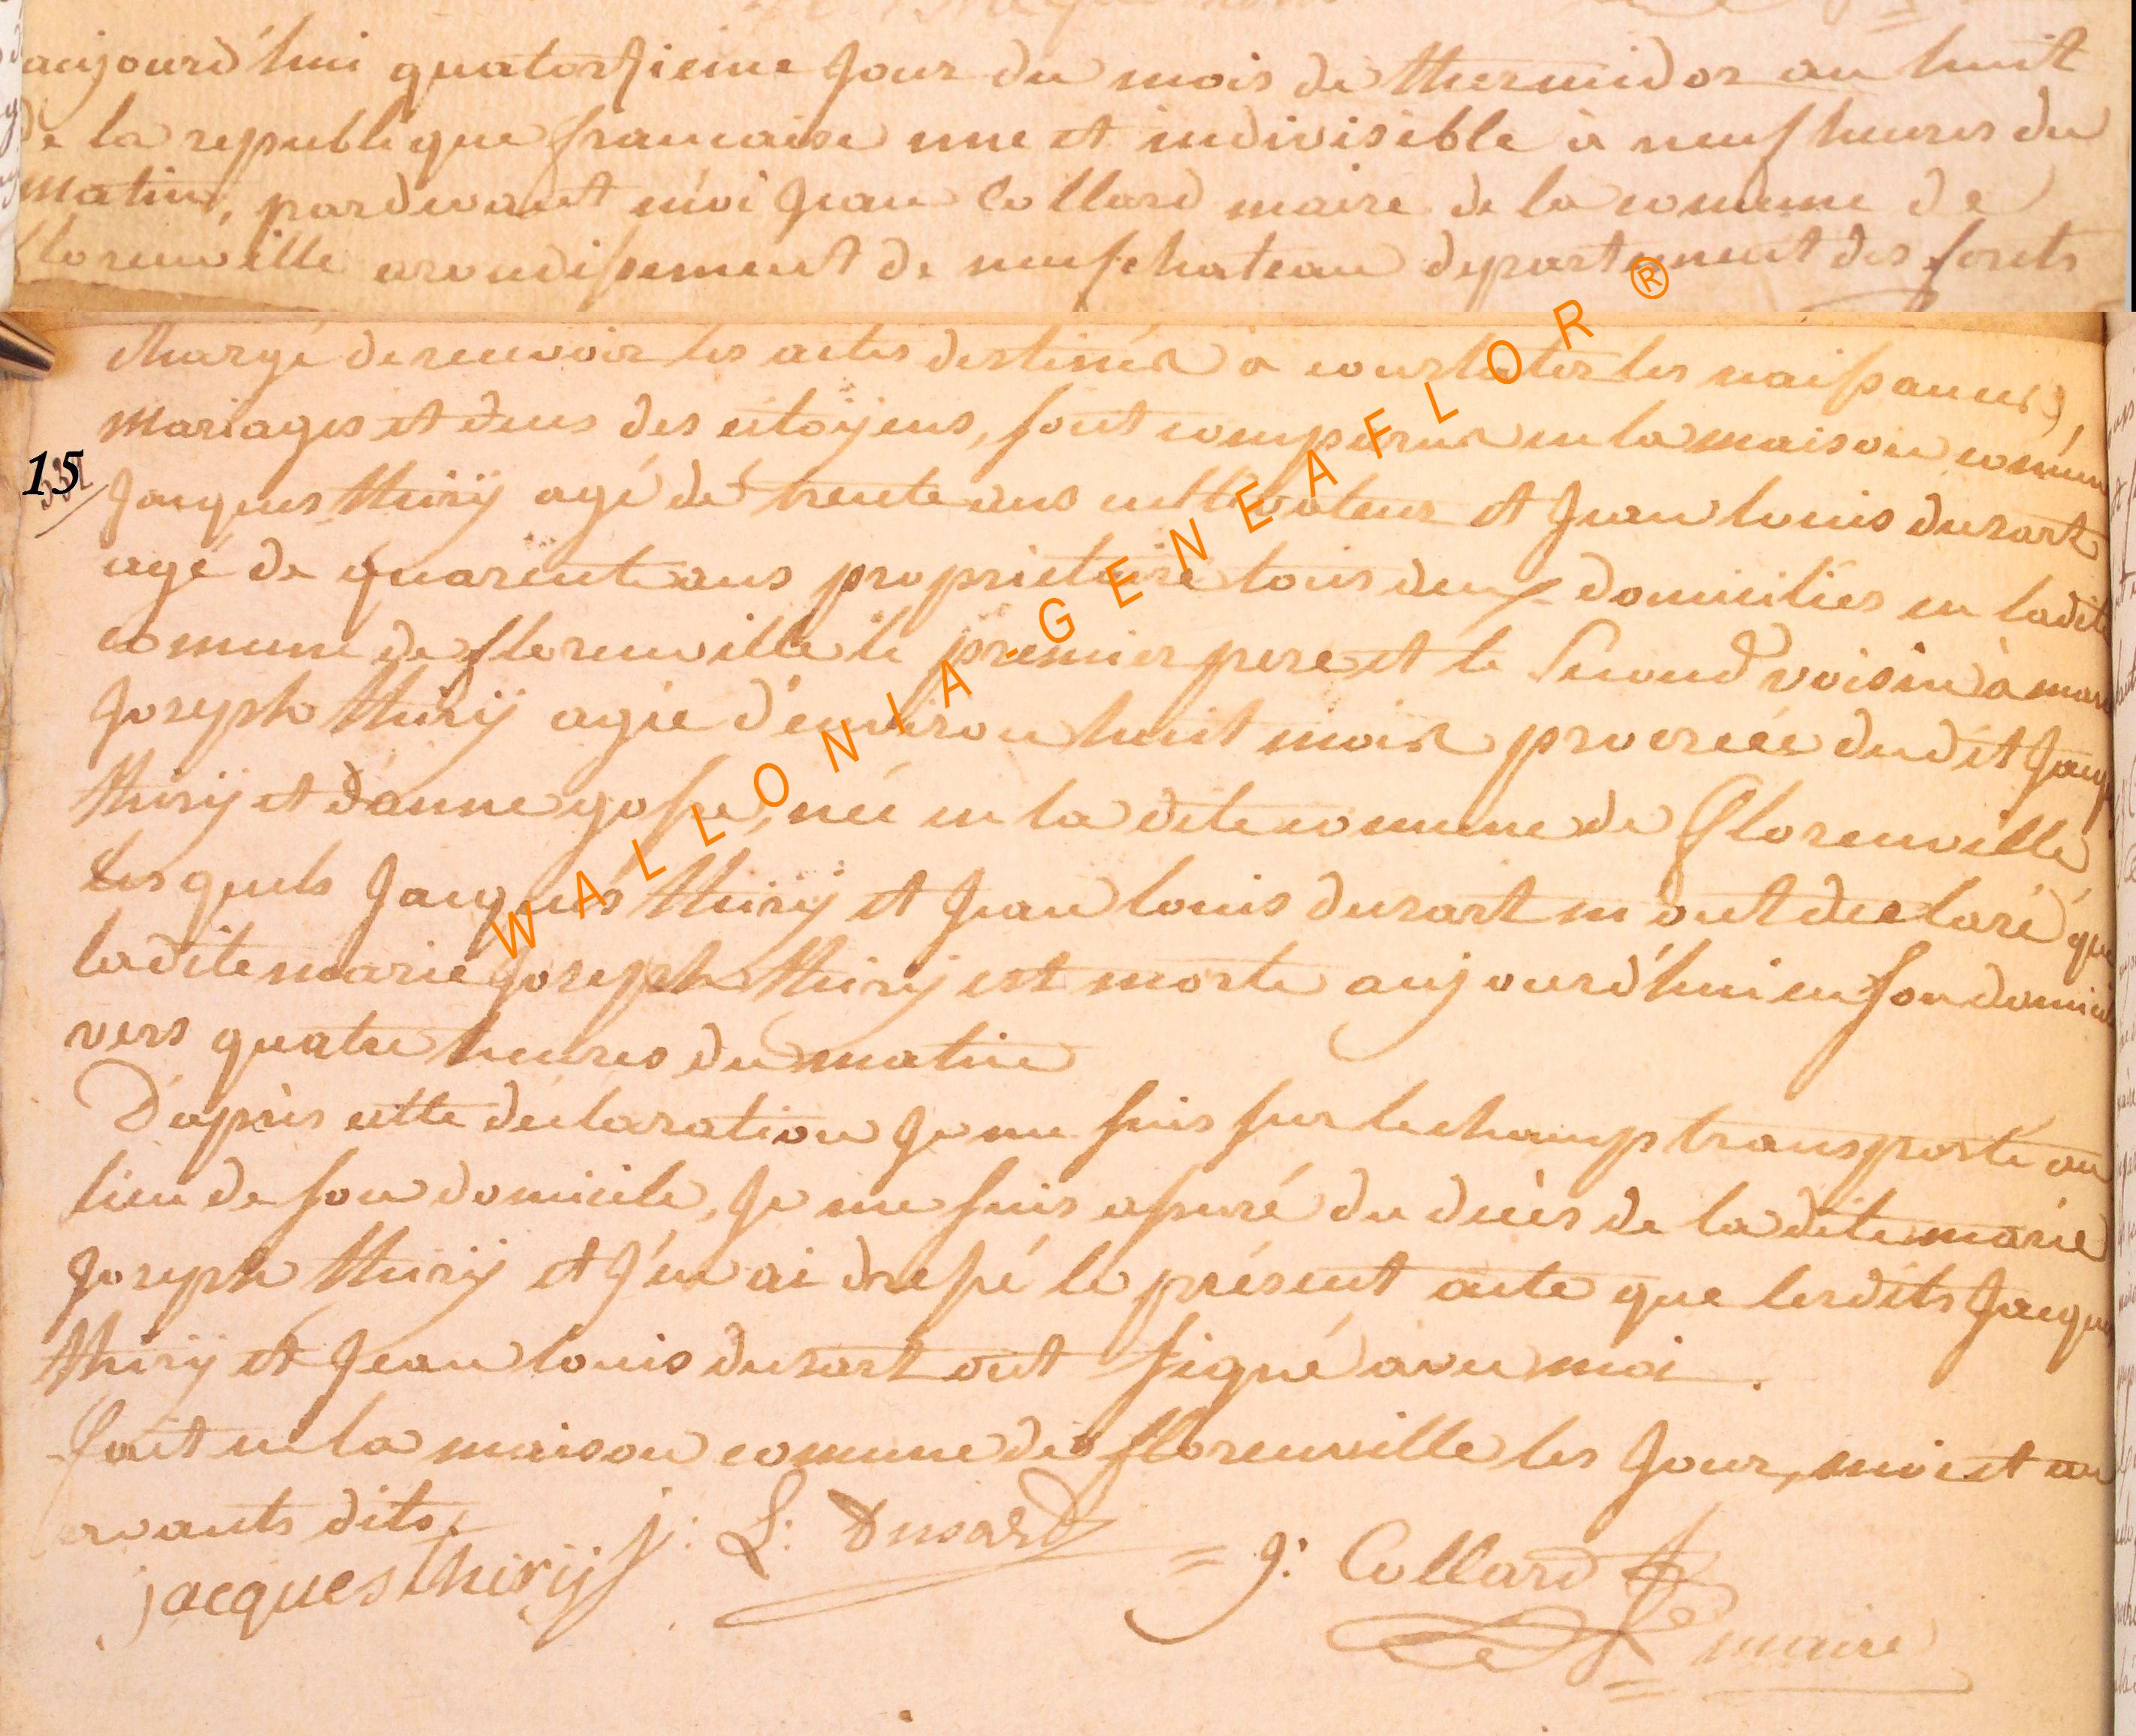 aujourd'hui quatorzieme jour du mois de thermidor an huit
de la republique francaise une et indivisible à neuf heures du
matin, pardevant moi jean Collard maire de la comune de
florenville arondissement de neufchateau departement des forets
chargé de recevoir les actes destinés a constater les naissances,
mariages et deces des citoyens, sont comparus en la maison comune
15 jacques thirÿ agé de trente ans cultivateur et jean louis dusart
agé de quarente ans proprietaire tous deux domiciliés en ladite
comune de florenville le premier pere et le second voisin à marie
joseph thirÿ agée d'environ huit mois procreée dudit jacques
thirÿ et d'anne gosse, née en la dite comune de florenville
les quels jacques thirÿ et jean louis dusart m'ont declaré que
ladite marie joseph thirÿ est morte aujourd'hui en son domicile
vers quatre heures du matin
D'après cette déclaration je me suis sur le champ transporté au
lieu de son domicile, je me suis assuré du decès de la dite marie
joseph thirÿ et j'en ai dressé le présent acte que lesdits jacques
thirÿ et jean louis dusart ont signé avec moi.
fait en la maison comune de florenville les jour, mois et an
avants dits.
jacques thirÿ j: L: Dusard = J: Collard
maire
WALLONIA-GENEAFLOR ®